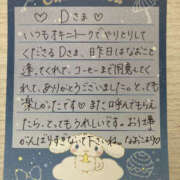 ♡ Dさま ♡
いつもオキニトークでやりとりして
くださるDさま、昨日はななおこと
逢ってくれて、コーヒーまで用意してくれ
て、ありがとうございました。とっても
楽しかったです♡また呼んでもらえ
たら、とってもうれしいです。お仕事
がんばりすぎないで下さいね。ななおこより♡